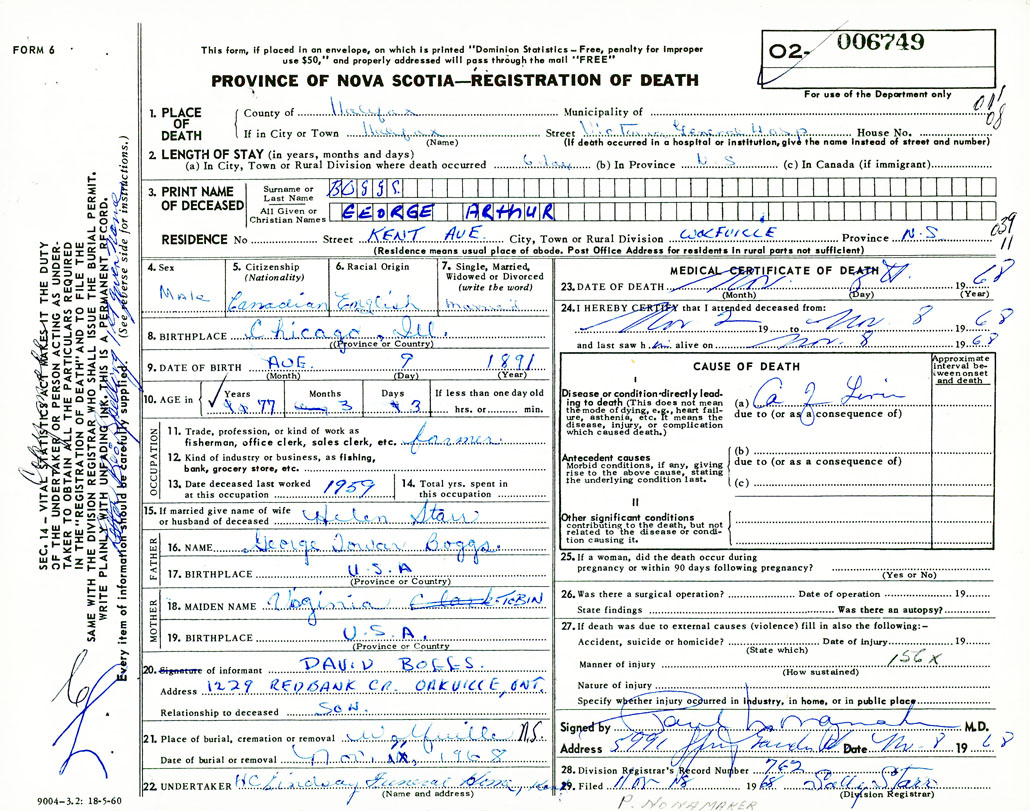 FORM 6
This form, if placed in an envelope, on which is printed "Dominion Statistics – Free, penalty for improper
use $50," and properly addressed will pass through the mail "FREE"
PROVINCE OF NOVA SCOTIA—REGISTRATION OF DEATH
02- 006749
For use of the Department only
1. PLACE OF DEATH
County of Halifax Municipality of
If in City or Town Halifax Street Victoria General Hosp House No.
(Name) (If death occurred in a hospital or institution, give the name instead of street and number)
2. LENGTH OF STAY (in years, months and days)
(a) In City, Town or Rural Division where death occurred 6 (b) In Province N S (c) In Canada (if immigrant)
3. PRINT NAME OF DECEASED
Surname or Last Name BOGGS
All Given or Christian Names GEORGE ARTHUR
RESIDENCE No Street KENT AVE. City, Town or Rural Division WOLFVILLE Province N.S
(Residence means usual place of abode. Post Office Address for residents in rural parts not sufficient)
039
11
4. Sex Male
5. Citizenship (Nationality) Canadian
6. Racial Origin English
7. Single, Married, Widowed or Divorced (write the word) married
8. BIRTHPLACE Chicago, Ill.
(Province or Country)
9. DATE OF BIRTH AUE 9 1891
(Month) (Day) (Year)
10. AGE in Years 77 Months 3 Days 3 If less than one day old hrs. or min.
OCCUPATION
11. Trade, profession, or kind of work as
fisherman, office clerk, sales clerk, etc. farmer
12. Kind of industry or business, as fishing,
bank, grocery store, etc.
13. Date deceased last worked at this occupation 1959
14. Total yrs. spent in this occupation
15. If married give name of wife or husband of deceased Helen Starr
FATHER
16. NAME George Boggs.
17. BIRTHPLACE U.S.A
(Province or Country)
MOTHER
18. MAIDEN NAME Virginia Clark TOBIN
19. BIRTHPLACE U.S.A.
(Province or Country)
20. Signature of informant DAVID BOGGS.
Address 1229 REDBANK CR. OAKVILLE, ONT.
Relationship to deceased SON.
21. Place of burial, cremation or removal Wolfville N.S.
Date of burial or removal Nov. 1968
22. UNDERTAKER HC Lindsay Funeral Home,
(Name and address)
MEDICAL CERTIFICATE OF DEATH
23. DATE OF DEATH Nov. 8th 1968
(Month) (Day) (Year)
24. I HEREBY CERTIFY that I attended deceased from:
Nov 2 19 to Nov. 8 1968
and last saw him alive on Nov. 8 1968
CAUSE OF DEATH
Approximate interval between onset and death
I
Disease or condition directly leading to death (This does not mean the mode of dying, e.g., heart failure, asthenia, etc. It means the disease, injury, or complication which caused death.)
(a) Ca of Liver
due to (or as a consequence of)
Antecedent causes
Morbid conditions, if any, giving rise to the above cause, stating the underlying condition last.
(b)
due to (or as a consequence of)
(c)
II
Other significant conditions
contributing to the death, but not related to the disease or condition causing it.
25. If a woman, did the death occur during
pregnancy or within 90 days following pregnancy?
(Yes or No)
26. Was there a surgical operation? Date of operation 19
State findings Was there an autopsy?
27. If death was due to external causes (violence) fill in also the following:-
Accident, suicide or homicide? Date of injury 19
(State which)
Manner of injury 156X
(How sustained)
Nature of injury
Specify whether injury occurred in industry, in home, or in public place
Signed by M.D.
Address 5991 Spring Garden Rd Date Nov. 8 1968
28. Division Registrar's Record Number 762
29. Filed Nov 18 1968 Sally Starr
(Division Registrar)
P. NOWAMAKER
SEC. 14 – VITAL STATISTICS ACT MAKES IT THE DUTY
OF THE UNDERTAKER OR PERSON ACTING AS UNDER-
TAKER TO OBTAIN ALL THE PARTICULARS REQUIRED
IN THE "REGISTRATION OF DEATH" AND TO FILE THE
SAME WITH THE DIVISION REGISTRAR WHO SHALL ISSUE THE BURIAL PERMIT.
WRITE PLAINLY WITH UNFADING INK. THIS IS A PERMANENT RECORD.
Every item of information should be carefully supplied. (See reverse side for instructions.)
9004–3.2: 18-5-60